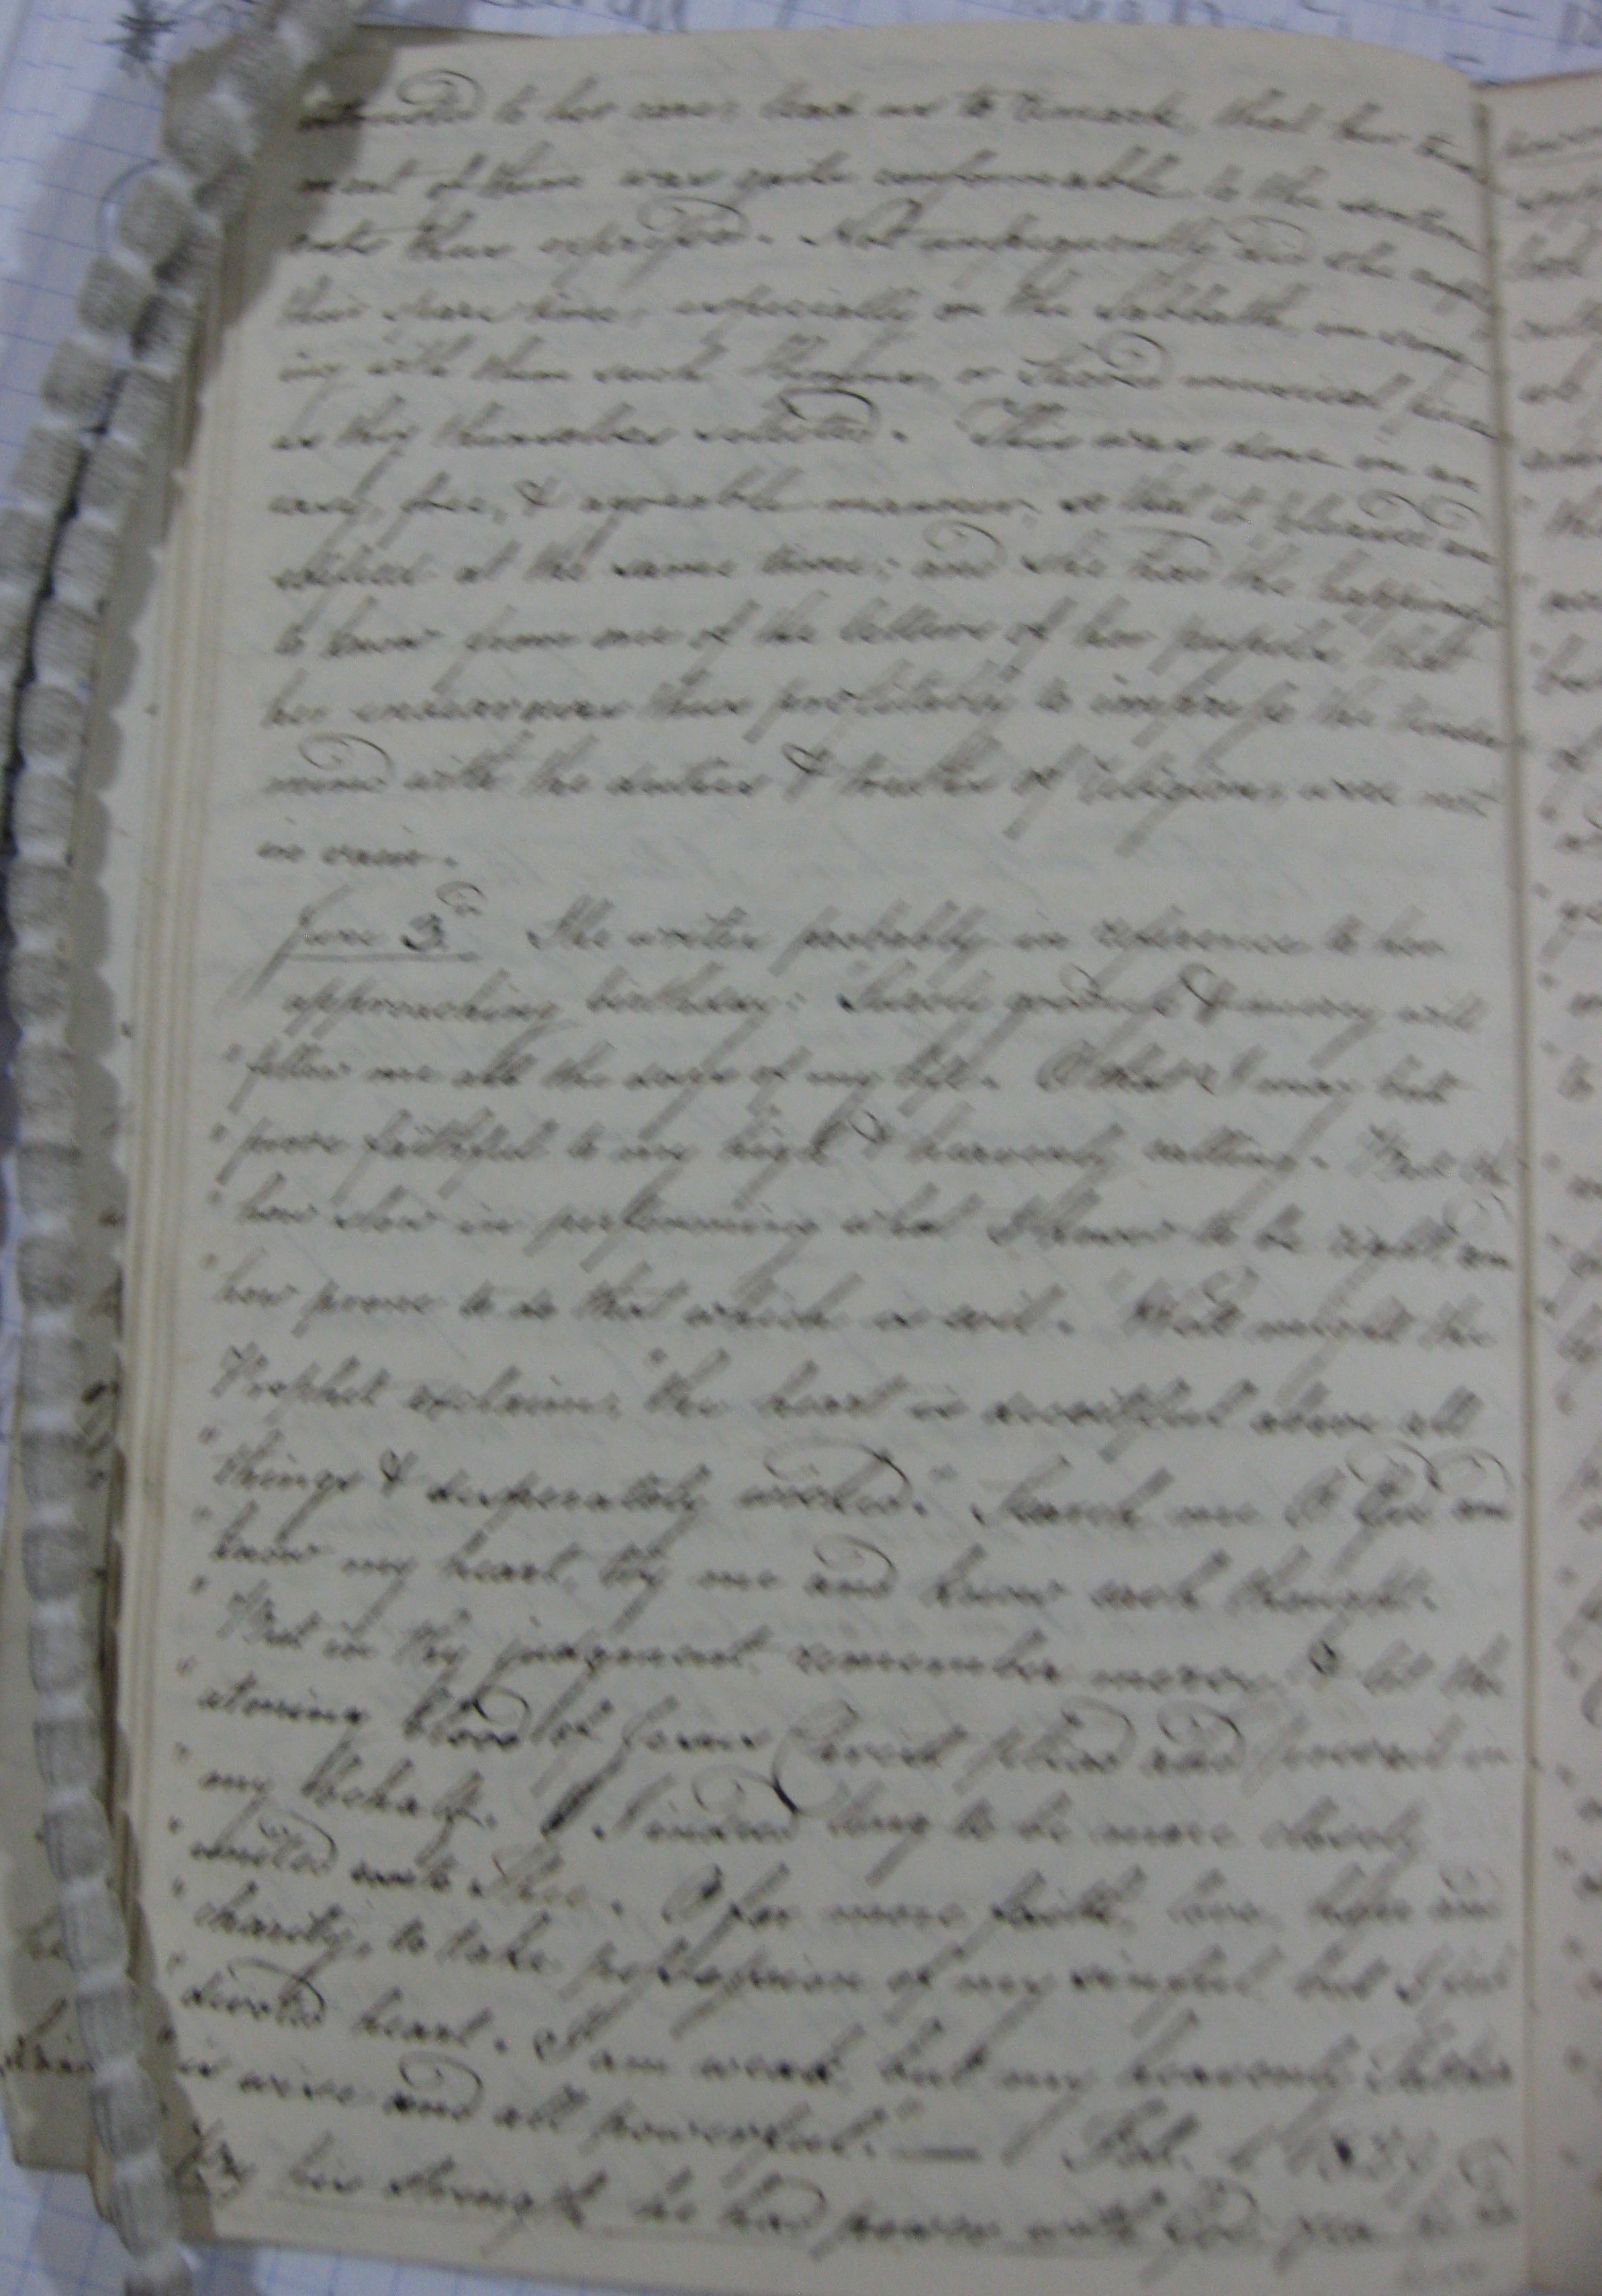 to her care, lead us to remark, that her
ment of them was quite conformable to the senti
ments thus expressed. Not unfrequently did she
their leisure time, especially on the Sabbath, in
ing with them such Hymns, or Sacred musical
as they themselves selected. This was done in an
easy, free, & agreeable manner, so that it pleased and
edified at the same time; and she had the happiness
to know from one of the letters of her pupils, that
her endeavours thus profitably to impress the tender
mind with the duties & truths of Religion, were not
in vain.
June 3d. She writes probably in reference to her
approaching birthday: "Surely goodness & mercy will
" follow me all the days of my life. O that I may but
" prove faithful to my high & heavenly calling. But oh
" how slow in performing what I know to be right and
" how prone to do that which is evil. Well might the
Prophet exclaim, "the heart is deceitful above all
" things & desperately wicked." Search me O God and
" know my heart, try me and know each thought.
" But in thy judgment remember mercy & let the
" atoning blood of Jesus Christ plead and prevail in
" my behalf. I indeed long to be more closely
" united unto Thee. O for more faith, love, hope and
" charity, to take possession of my sinful, but I
" divided heart. I am weak, but my heavenly Father
" is wise and all powerful." —
By his strength he had power with God, yea he